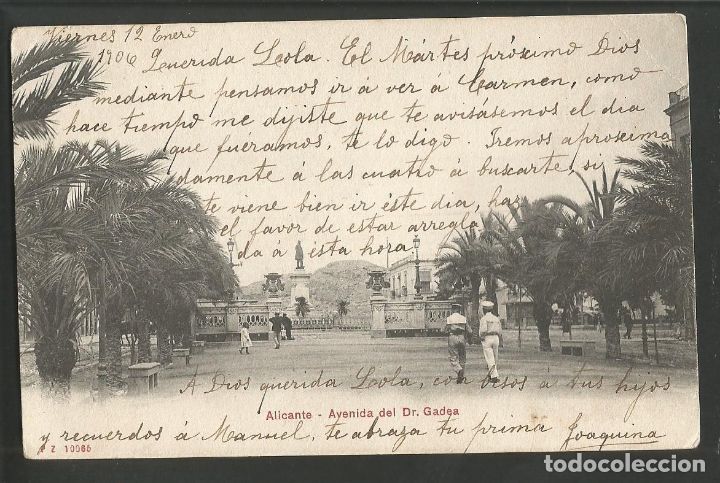 Viernes 12 Enero
1906 Querida Lola. El Mártes próximo Dios
mediante pensamos ir á ver á Carmen, como
hace tiempo me dijiste que te avisásemos el dia
que fuéramos, te lo digo. Iremos aproxima
damente á las cuatro á buscarte, si
te viene bien ir éste dia, haz
el favor de estar arregla
da á ésta hora
A Dios querida Lola, con besos a tus hijos
Alicante - Avenida del Dr. Gadea
y recuerdos á Manuel, te abraza tu prima Joaquina
P Z 10065
todocoleccion.net